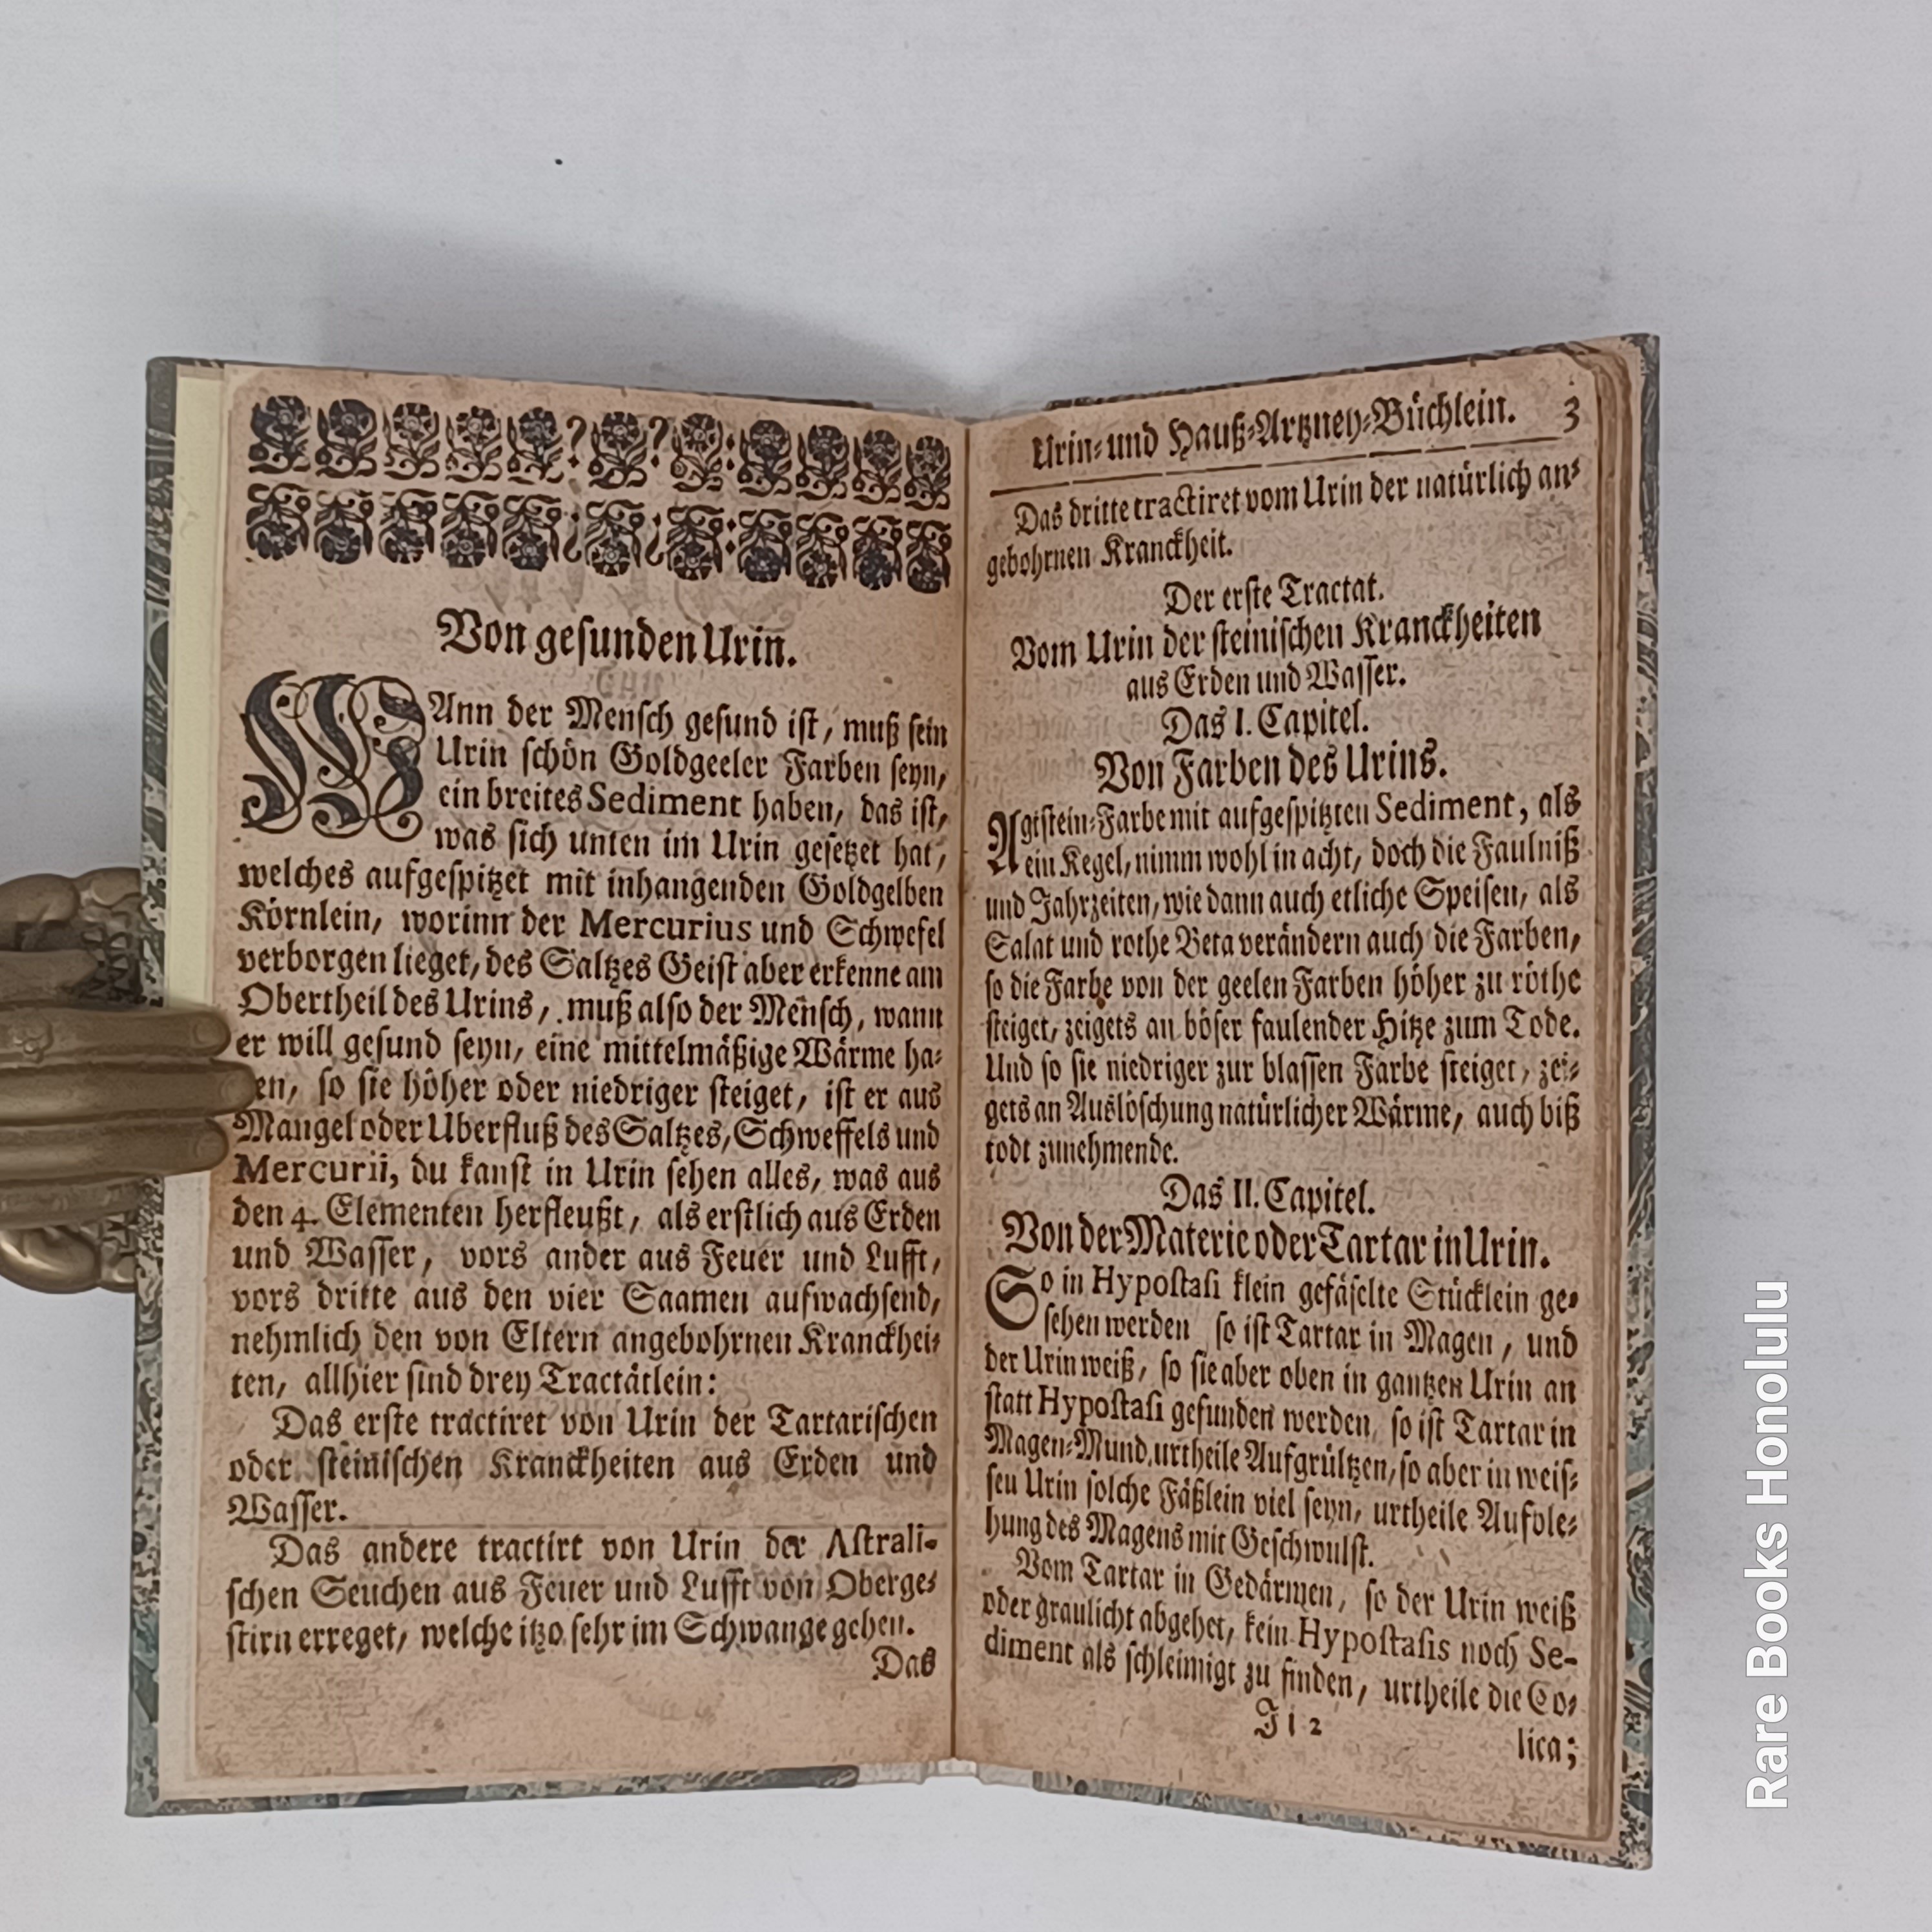 Von gesunden Urin.
WAnn der Mensch gesund ist, muß sein
Urin schön Goldgeeler Farben seyn,
ein breites Sediment haben, das ist,
was sich unten im Urin gesetzet hat,
welches aufgespitzet mit inhangenden Goldgelben
Körnlein, worinn der Mercurius und Schwefel
verborgen lieget, des Saltzes Geist aber erkenne am
Obertheil des Urins, muß also der Mensch, wann
er will gesund seyn, eine mittelmäßige Wärme ha-
en, so sie höher oder niedriger steiget, ist er aus
Mangel oder Uberfluß des Saltzes, Schweffels und
Mercurii, du kanst in Urin sehen alles, was aus
den 4. Elementen herfleußt, als erstlich aus Erden
und Wasser, vors ander aus Feuer und Lufft,
vors dritte aus den vier Saamen aufwachsend,
nehmlich den von Eltern angebohrnen Kranckhei-
ten, allhier sind drey Tractätlein:
Das erste tractiret von Urin der Tartarischen
oder steinischen Kranckheiten aus Erden und
Wasser.
Das andere tractirt von Urin der Astrali-
schen Seuchen aus Feuer und Lufft von Oberge-
stirn erreget, welche itzo sehr im Schwange gehen.
Das
Urin- und Hauß-Artzney-Büchlein. 3
Das dritte tractiret vom Urin der natürlich an-
gebohrnen Kranckheit.
Der erste Tractat.
Vom Urin der steinischen Kranckheiten
aus Erden und Wasser.
Das I. Capitel.
Von Farben des Urins.
Agtstein-Farbe mit aufgespitzten Sediment, als
ein Kegel, nimm wohl in acht, doch die Faulniß
und Jahrzeiten, wie dann auch etliche Speisen, als
Salat und rothe Beta verändern auch die Farben,
so die Farbe von der geelen Farben höher zu röthe
steiget, zeigets an böser faulender Hitze zum Tode.
Und so sie niedriger zur blassen Farbe steiget, zei-
gets an Auslöschung natürlicher Wärme, auch biß
todt zunehmende.
Das II. Capitel.
Von der Materie oder Tartar in Urin.
So in Hypostasi klein gefäselte Stücklein ge-
sehen werden so ist Tartar in Magen, und
der Urin weiß, so sie aber oben in gantzen Urin an
statt Hypostasi gefunden werden, so ist Tartar in
Magen-Mund, urtheile Aufgrültzen, so aber in weis-
sen Urin solche Fäßlein viel seyn, urtheile Aufble-
hung des Magens mit Geschwulst.
Vom Tartar in Gedärmen, so der Urin weiß
oder graulicht abgehet, kein Hypostasis noch Se-
diment als schleimigt zu finden, urtheile die Co-
J i 2
lica;
Rare Books Honolulu